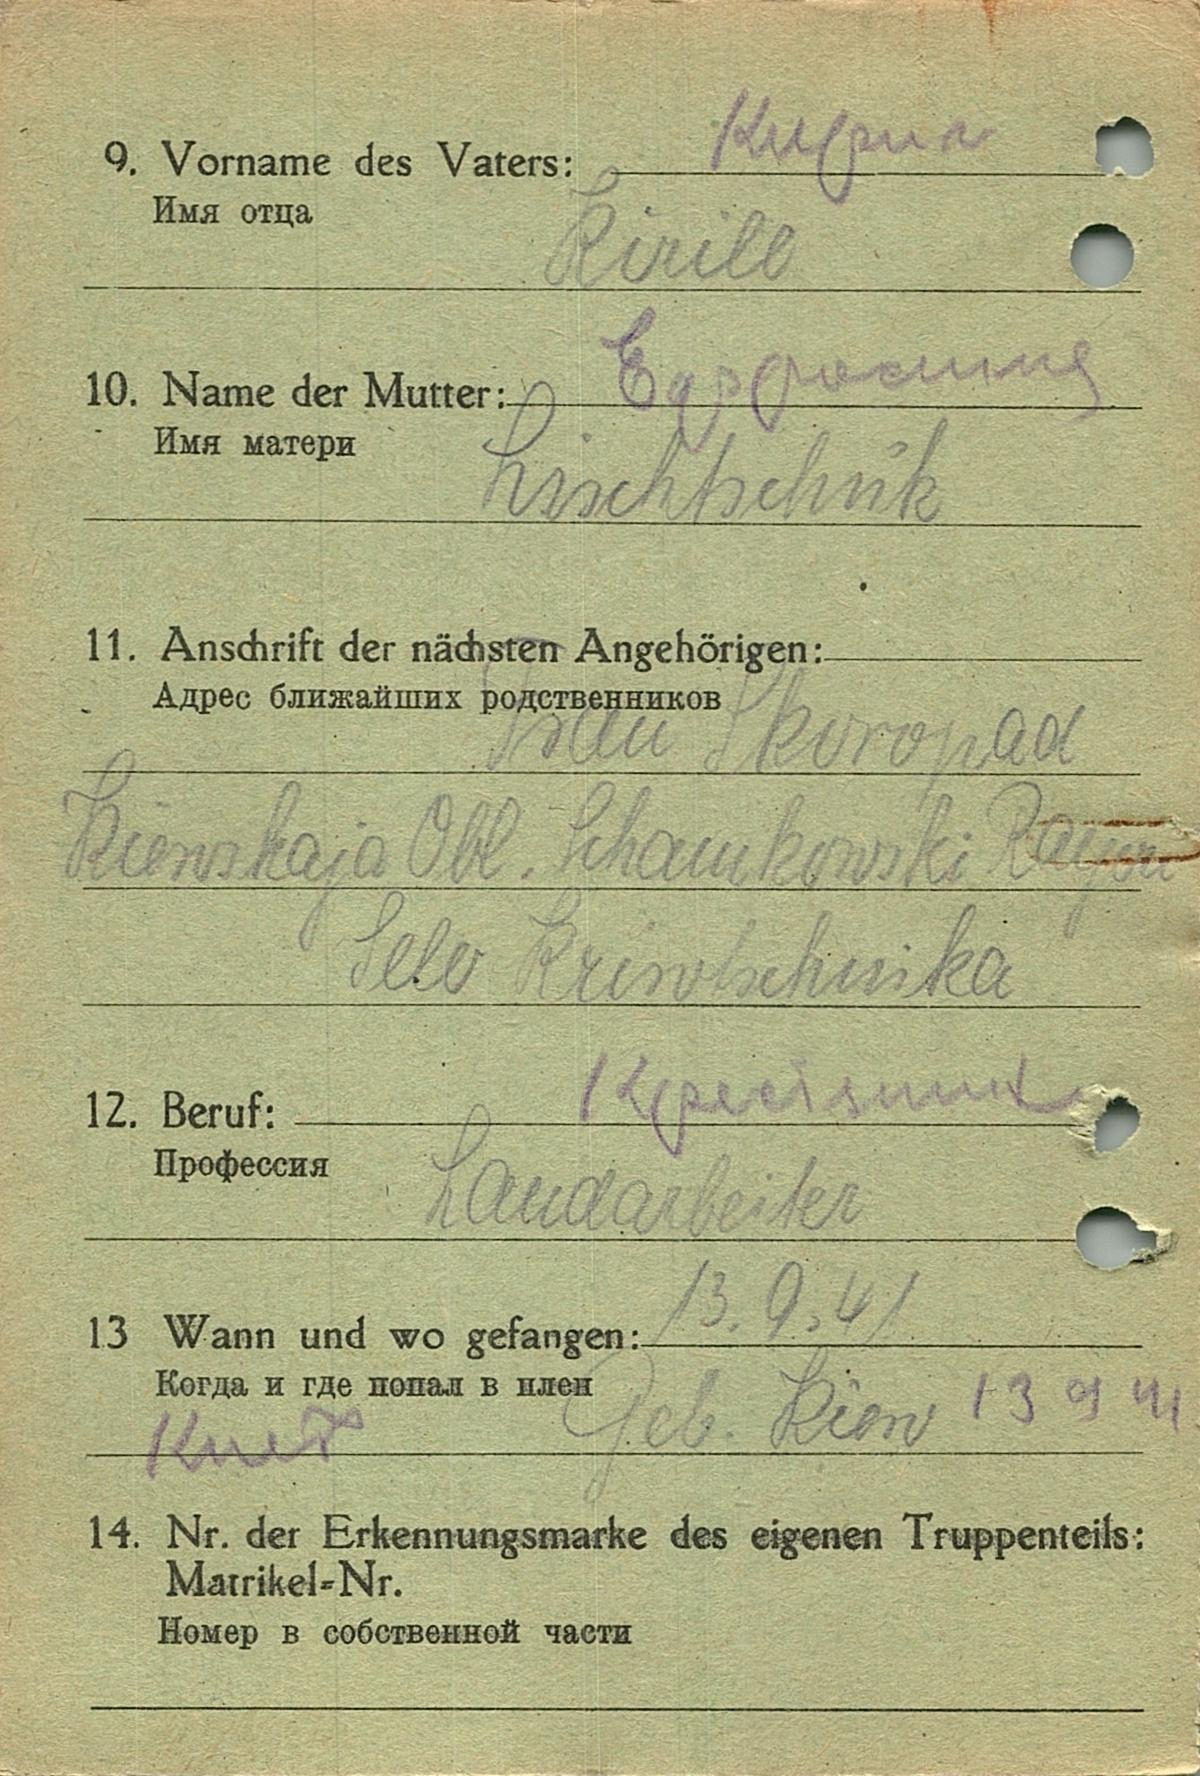 9. Vorname des Vaters: Кирил
Имя отца
Kirill
10. Name der Mutter:
Имя матери
Lischtschuk
11. Anschrift der nächsten Angehörigen:
Адрес ближайших родственников
Frau Skoropad
Kiewskaja Obl. Schaukowski Rayon
Selo Kriwtschunka
12. Beruf:
Профессия
Landarbeiter
13 Wann und wo gefangen: 13.9.41
Когда и где попал в плен
Geb. Kiew 13 9 41
14. Nr. der Erkennungsmarke des eigenen Truppenteils:
Matrikel=Nr.
Номер в собственной части